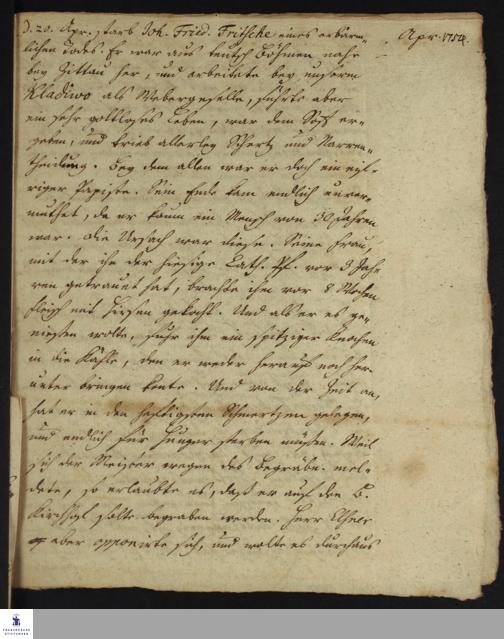 D. 20. Apr. starb Joh. Frid. Fritsche eines erbärm-
Apr. 1754.
lichen Todes. Er war aus teutsch Böhmen nahe
bey Zittau her, und arbeitete bey unserm
Kladiwo als Webergeselle, führte aber
ein sehr gottloses Leben, war dem Soff er-
geben, und trieb allerley Schertz und Narren-
theidung. Bey dem allen war er doch ein eyf-
riger Papiste. Sein Ende kam endlich unver-
muthet, da er kaum ein Mensch von 30 Jahren
war. Die Ursach war diese. Seine Frau,
mit der ihn der hiesige Cath. Pf. vor 3 Jah-
ren getrauet hat, brachte ihm vor 8 Wochen
Fleisch mit Hirsen gekocht. Und als er es ge-
niessen wolte, fuhr ihm ein spitziger Knochen
in die Kähle, den er weder herauf noch her-
unter bringen konte. Und von der Zeit an,
hat er in den hefftigsten Schmertzen gelegen,
und endlich für Hunger sterben müssen. Weil
sich der Meister wegen des Begräbn. mel-
dete, so erlaubte es, daß er auf den B.
Kirchhof solte begraben werden. Herr
aber opponirte sich, und wolte es durchaus
FRANCKESCHE
STIFTUNGEN